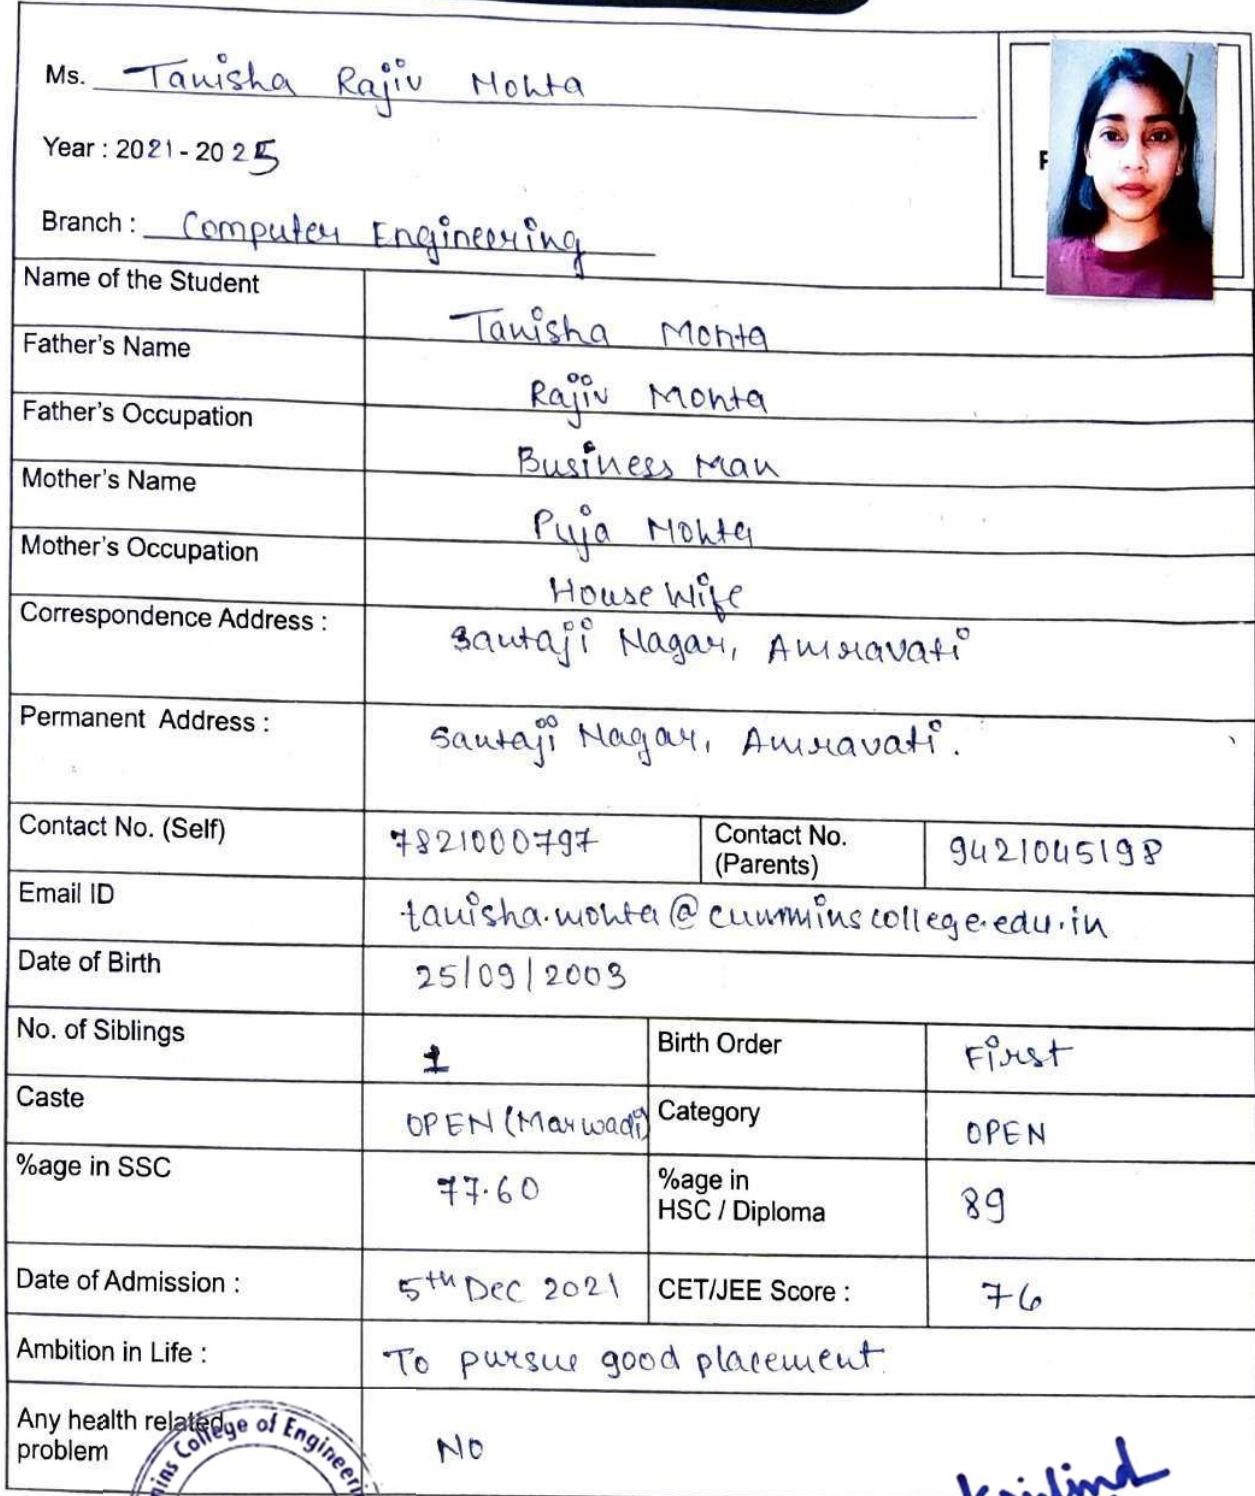 Ms. Tanisha Rajiv Mohta
Year : 2021 - 2025
Branch : Computer Engineering
Name of the Student Tanisha Mohta
Father's Name Rajiv Mohta
Father's Occupation Business Man
Mother's Name Puja Mohta
Mother's Occupation House Wife
Correspondence Address : Santaji Nagar, Amravati
Permanent Address : Santaji Nagar, Amravati.
Contact No. (Self) 7821000797 Contact No. (Parents) 9421045198
Email ID tanisha.mohta@cumminscollege.edu.in
Date of Birth 25/09/2003
No. of Siblings 1 Birth Order First
Caste OPEN (Marwadi) Category OPEN
%age in SSC 77.60 %age in HSC / Diploma 89
Date of Admission : 5th Dec 2021 CET/JEE Score : 76
Ambition in Life : To pursue good placement
Any health related problem NO
College of Engineeri